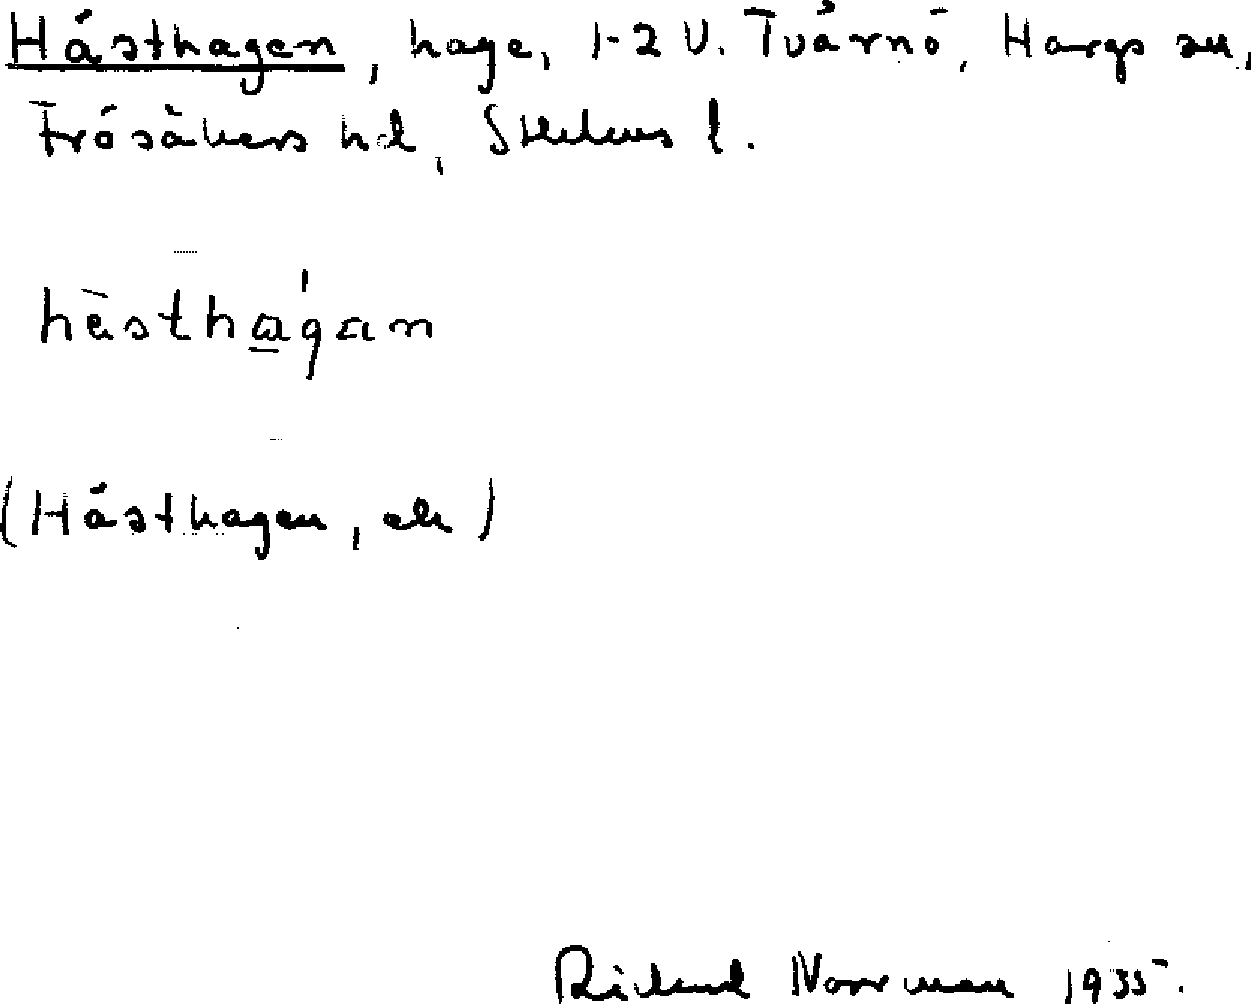 Hästhagen, hage, 1-2 V. Tvärnö, Hargs sn,
Frösåkers hd, Sthlms l.
hästhàgan
(Hästhagen, ek)
Rickard Norrman 1935.